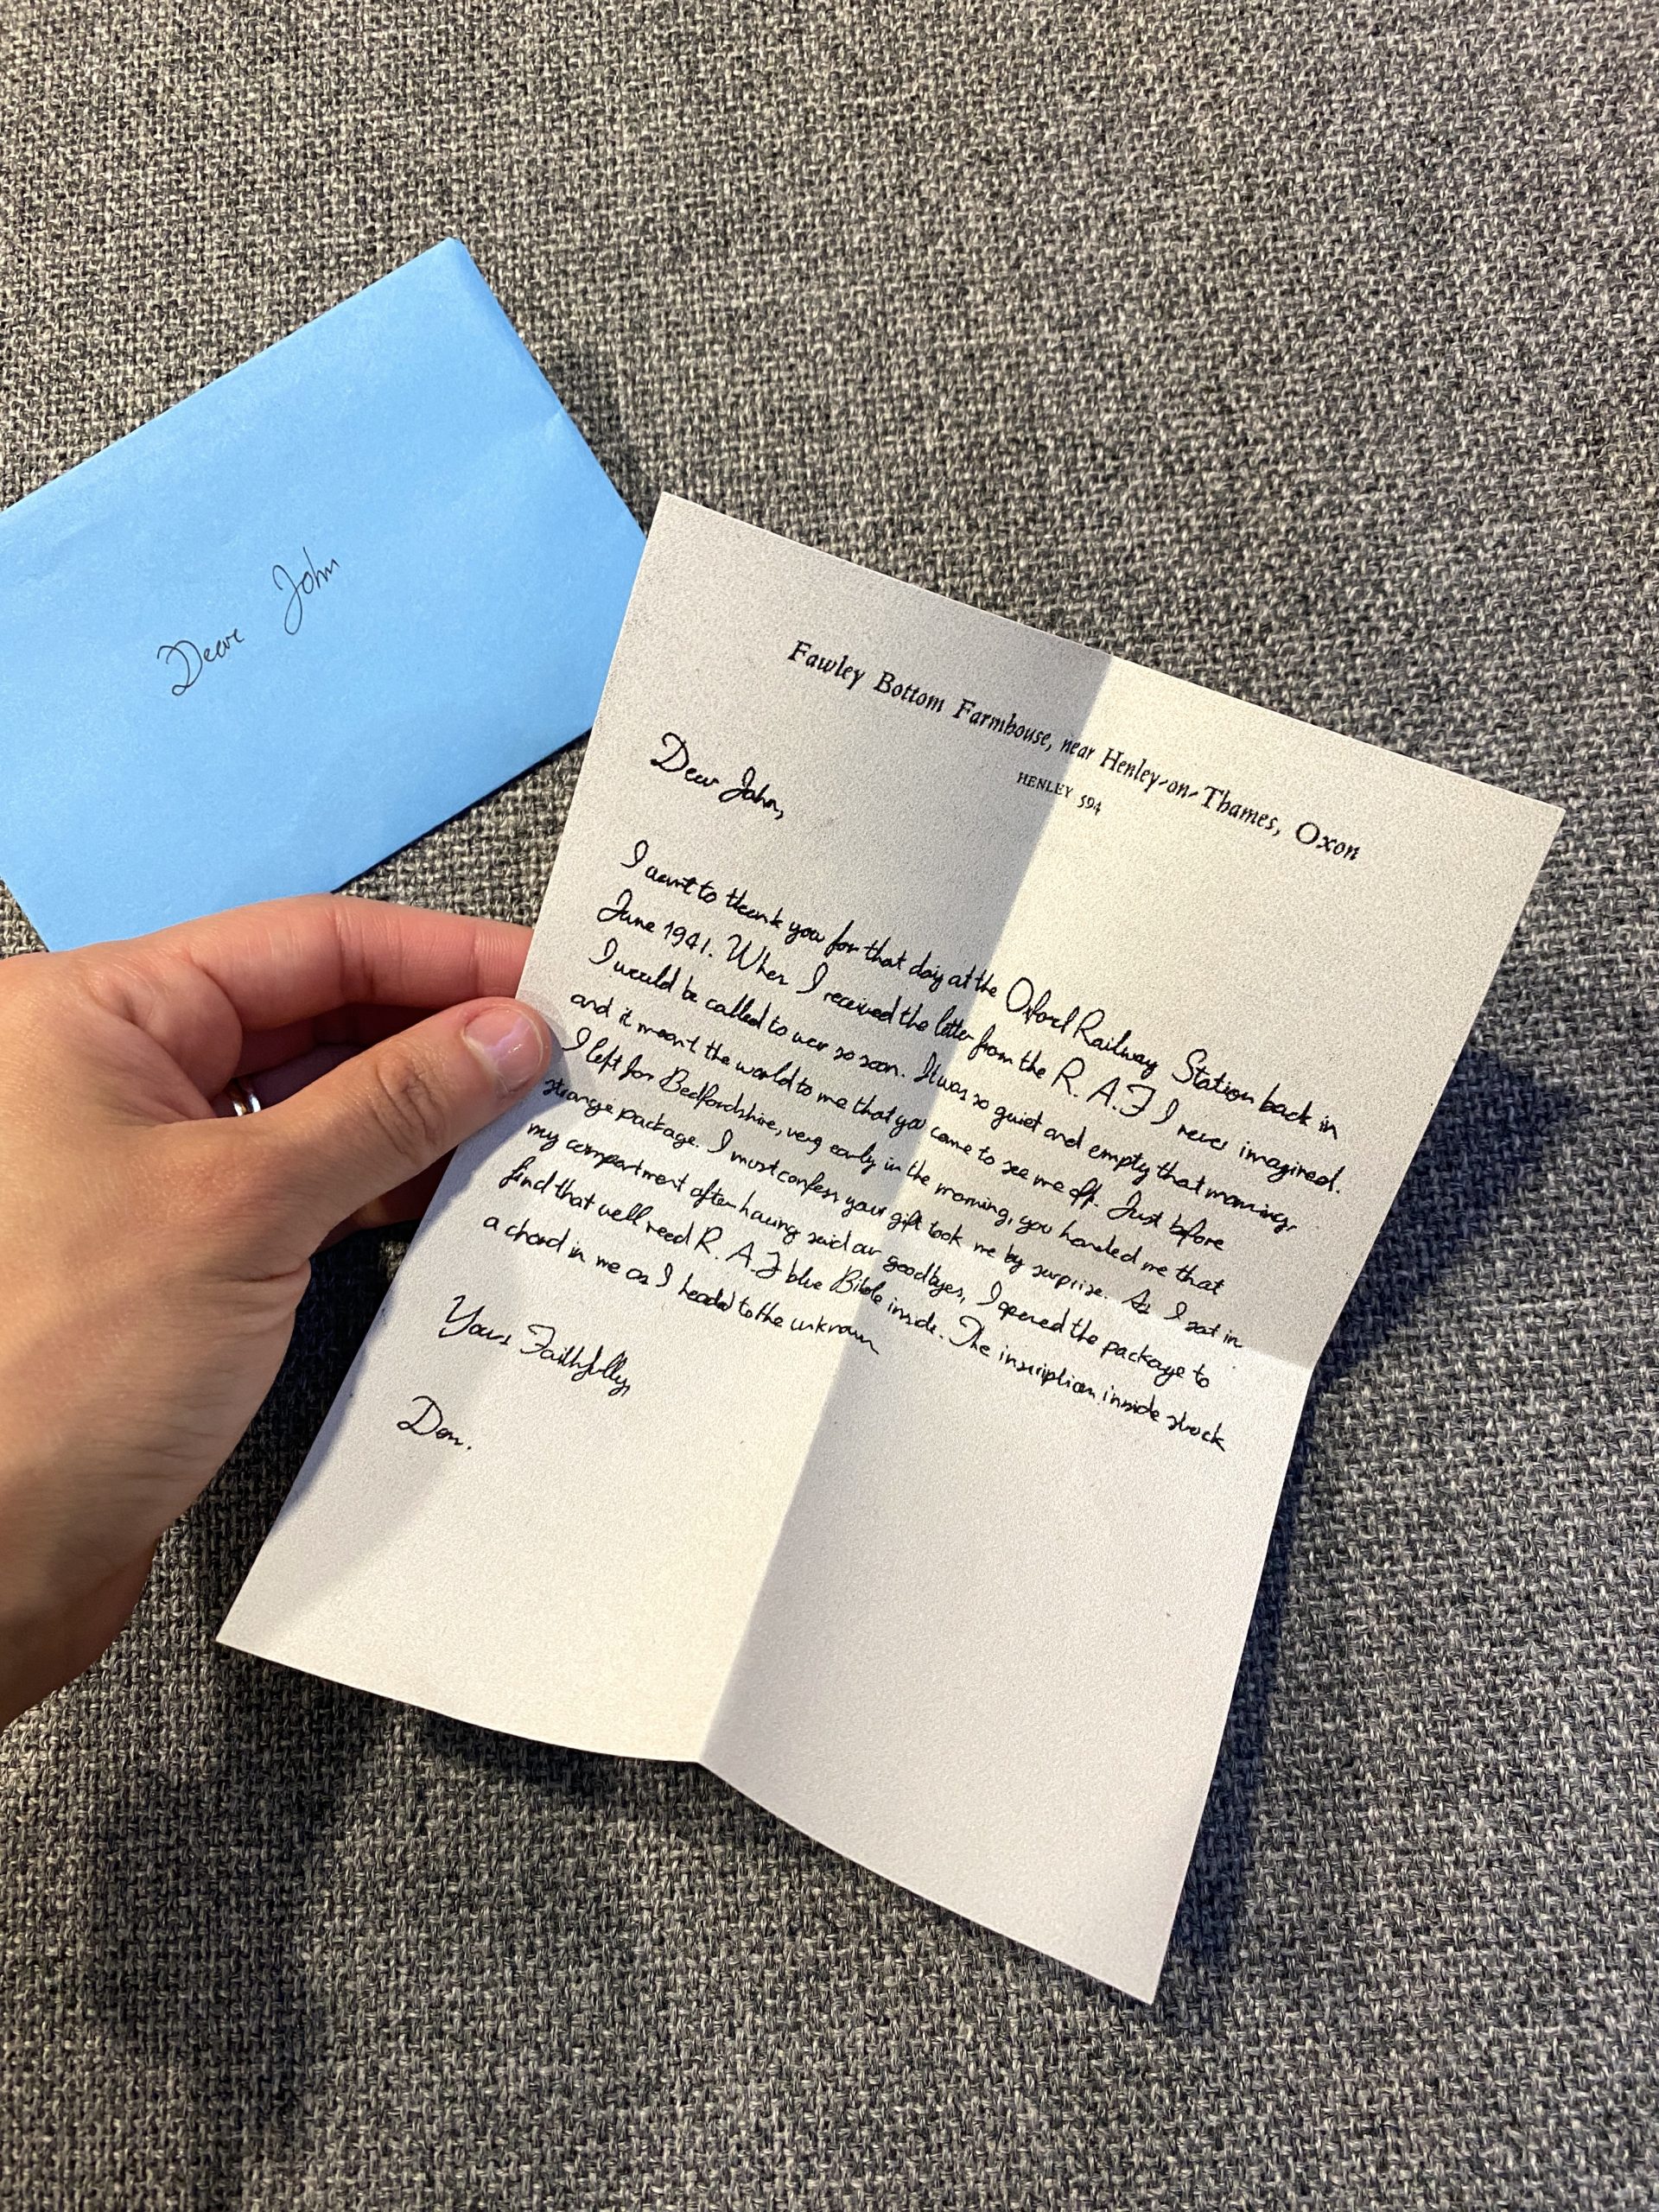 Dear John
Fawley Bottom Farmhouse, near Henley-on-Thames, Oxon
HENLEY 594
Dear John,
I want to thank you for that day at the Oxford Railway Station back in
June 1941. When I received the letter from the R. A. F I never imagined.
I would be called to war so soon. It was so quiet and empty that morning,
and it meant the world to me that you came to see me off. Just before
I left for Bedfordshire, very early in the morning, you handed me that
strange package. I must confess your gift took me by surprise. As I sat in
my compartment after having said our goodbyes, I opened the package to
find that well reed R. A. F blue Bible inside. The inscription inside struck
a chord in me as I headed to the unknown
Yours Faithfully,
Don.